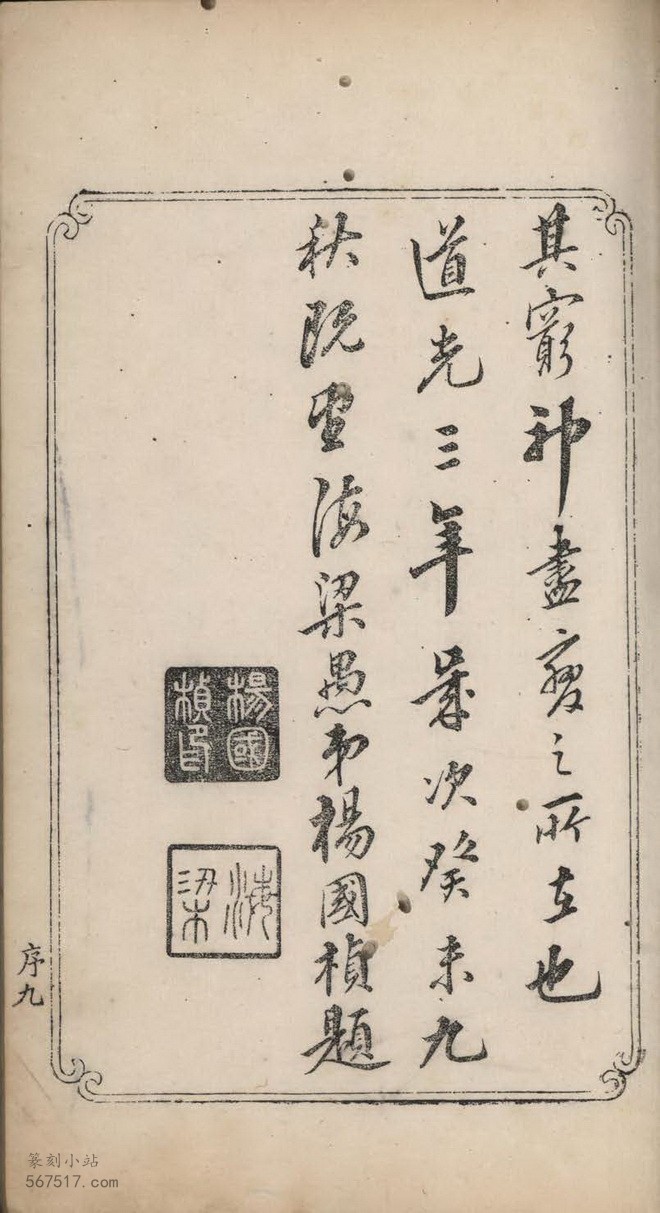 其窮神盡變之所在也
道光三年歲次癸未九
秋既望海梁愚弟楊國楨題
楊國
楨印
海
梁
序九
篆刻小站
567517.com